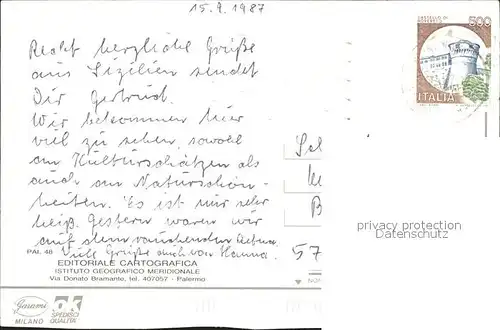 15.9.1987
Recht herzliche Grüße
aus Sizilien sendet
Dir Gertrud.
Wir bekommen hier
viel zu sehen, sowohl
an Kulturschätzen als
auch an Naturschön-
heiten. Es ist nur sehr
heiß. Gestern waren wir
auf dem rauchenden Aetna.
Viele Grüße auch von Hanna.
PAL 48
EDITORIALE CARTOGRAFICA
ISTITUTO GEOGRAFICO MERIDIONALE
Via Donato Bramante, tel. 407057 - Palermo
Garami
MILANO
OK
SPEDISCI
QUALITA'
CASTELLO DI
500
ITALIA
57
privacy protection
Datenschutz